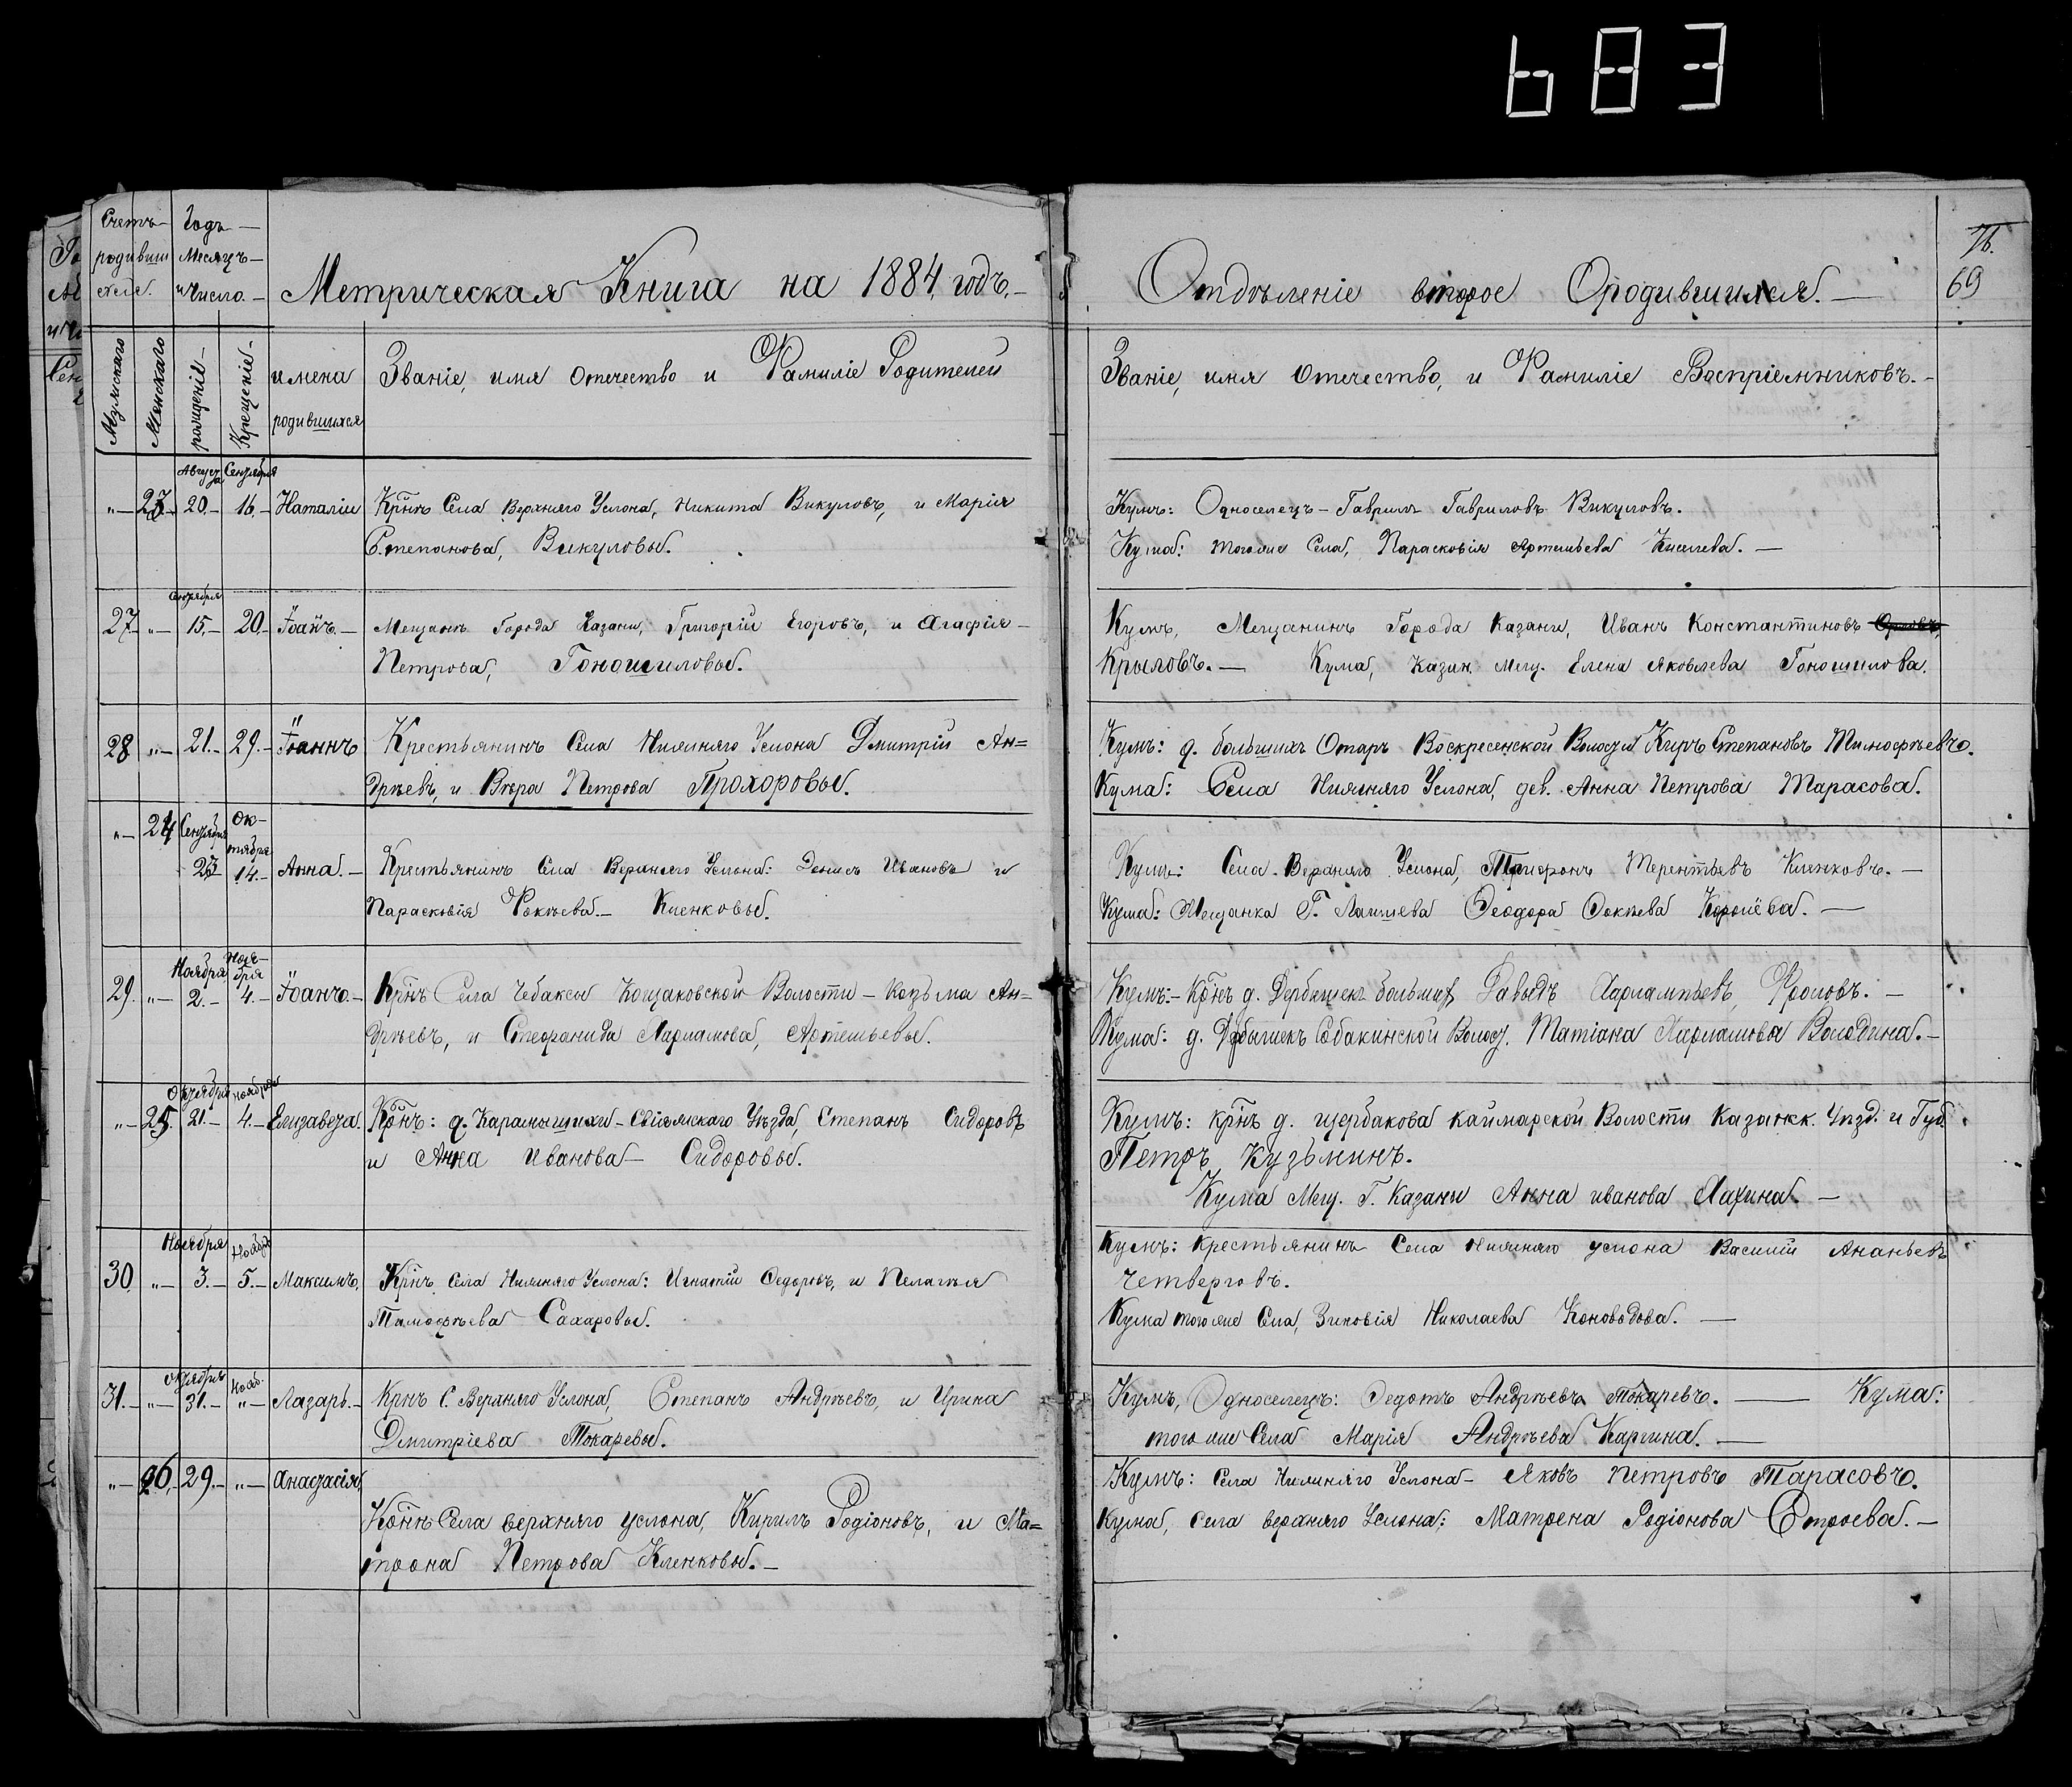 683
Счетъ родившихся.
Годъ Месяцъ и Число.
Метрическая Книга на 1884, годъ.
Отдѣленіе второе О родившихся.
76.
69
Мужскаго
Женскаго
рожденія
Крещеніе
имена родившихся
Званіе, имя отечество и Фамиліе Родителей
Званіе, имя отечество, и Фамиліе Воспріемниковъ.
Августа Сентября
"— 23 20. 16. Наталіи Крнъ Села Верхняго Услона, Никита Викуловъ, и Марія
Степанова, Викуловы.
Кумъ: Односелецъ - Гаврила Гавриловъ Викуловъ.
Кума: тогоже Села, Парасковія Артемьева Киселева.
Сентября
27. "— 15. 20. Іоанъ. Мещанъ Города Казани, Григорій Егоровъ, и Агафія
Петрова, Гоношиловы.
Кумъ, Мещанинъ Города Казани, Иванъ Константиновъ
Крыловъ. — Кума, Казан. мещ. Елена Яковлева Гоношилова.
28 "— 21. 29. Іоаннъ Крестьянинъ Села Нижняго Услона Дмитрій Ан=
дрѣевъ, и Вѣра Петрова Прохоровы.
Кумъ: д. большихъ Отаръ Воскресенской Волости Киръ Степановъ Тимофѣевъ.
Кума: Села Нижняго Услона, дев. Анна Петрова Тарасова.
"— 24 Сентября 23 Октября 14. Анна. Крестьянинъ Села Верхняго Услона: Денисъ Ивановъ и
Парасковія Фокѣева — Кленковы.
Кумъ: Села Верхняго Услона, Трифонъ Терентьевъ Кленковъ.
Кума: Мещанка Г. Лаишева Ѳеодора Ѳокѣева Королёва.
29. "— Ноября 2. Ноября 4. Іоанъ. Крнъ Села Чебаксы Кощаковской Волости - Козьма Ан=
дрѣевъ, и Стефанида Харламова, Артемьевы.
Кумъ: Крнъ д. Дербышекъ большихъ Давыдъ Харлампьевъ, Фроловъ.
Кума: д. Дербышекъ Собакинской Волос. Татіана Харламова Володина.
"— 25. Октября 21. Ноября 4. Елизавета. Крнъ: д. Карамышихи - Свіяжскаго Уѣзда, Степанъ Сидоровъ
и Анна Иванова — Сидоровы.
Кумъ: крнъ д. щербакова каймарской Волости Казанск. Уѣзд. и Губ.
Петръ Кузьминъ.
Кума Мещ. Г. Казани Анна иванова Лахина.
30. "— Ноября 3. Ноября 5. Максимъ. Крнъ Села Нижняго Услона: Игнатій Ѳедоровъ, и Пелагѣя
Тимофѣева Сахаровы.
Кумъ: крестьянинъ Села нижняго услона Василій Ананьевъ
Четверговъ.
Кума тогоже Села, Зиновія Николаева Коноводова.
31. "— Октября 31. Нояб. "— Лазарь. Крнъ С. Верхняго Услона, Степанъ Андрѣевъ, и Ирина
Дмитріева Токаревы.
Кумъ, Односелецъ: Ѳедотъ Андрѣевъ Токаревъ. — Кума:
тогоже Села Марія Андрѣева Каргина.
"— 26. 29. "— Анастасія, Крнъ Села верхняго услона, Кирилъ Родіоновъ, и Ма=
трона Петрова Кленковы.
Кумъ: Села Нижняго Услона - Яковъ Петровъ Тарасовъ.
Кума, Села верхняго Услона: Матрена Родіонова Строева.